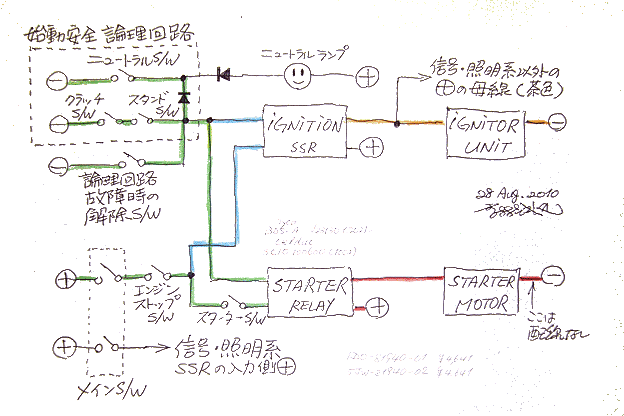 始動安全 論理回路
ニュートラルS/W
ニュートラルランプ
クラッチ
S/W
スタンド
S/W
信号・照明系以外の
⊕の母線(茶色)
IGNITION
SSR
IGNITOR
UNIT
論理回路
故障時の
解除S/W
28 Aug. 2010
エンジン
ストップ
S/W
スターターS/W
STARTER
RELAY
STARTER
MOTOR
ここは
配線なし
信号・照明系
SSRの入力側⊕
メインS/W